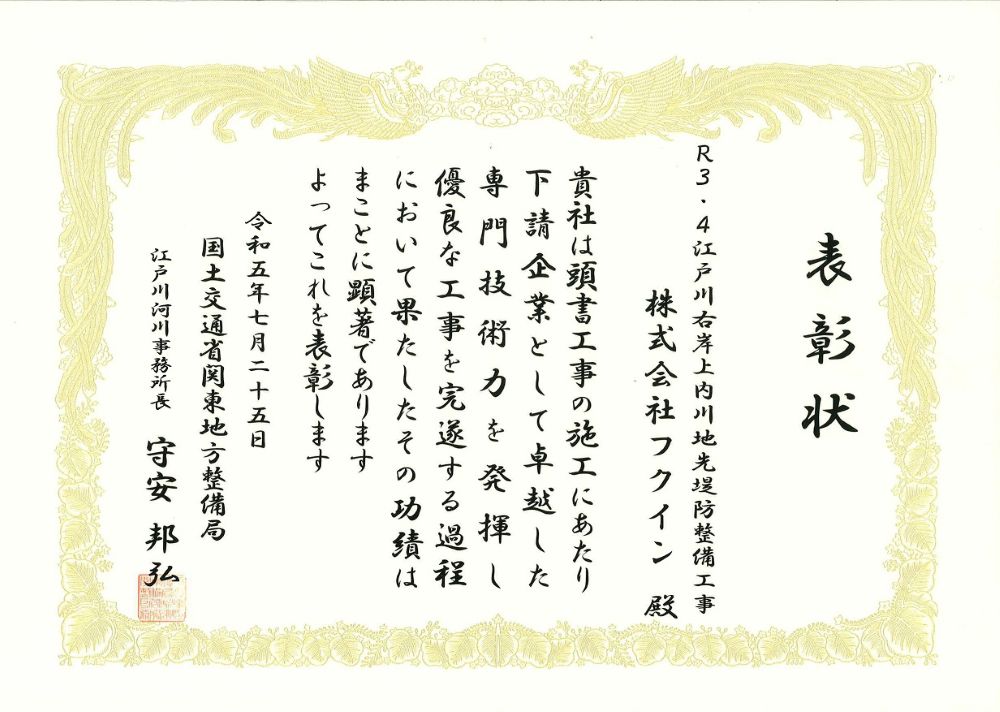 表彰状
R3.4江戸川右岸上内川地先堤防整備工事
株式会社フクイン 殿
貴社は頭書工事の施工にあたり
下請企業として卓越した
専門技術力を発揮し
優良な工事を完遂する過程
において果たしたその功績は
まことに顕著であります
よってこれを表彰します
令和五年七月二十五日
国土交通省関東地方整備局
江戸川河川事務所長 守安 邦弘